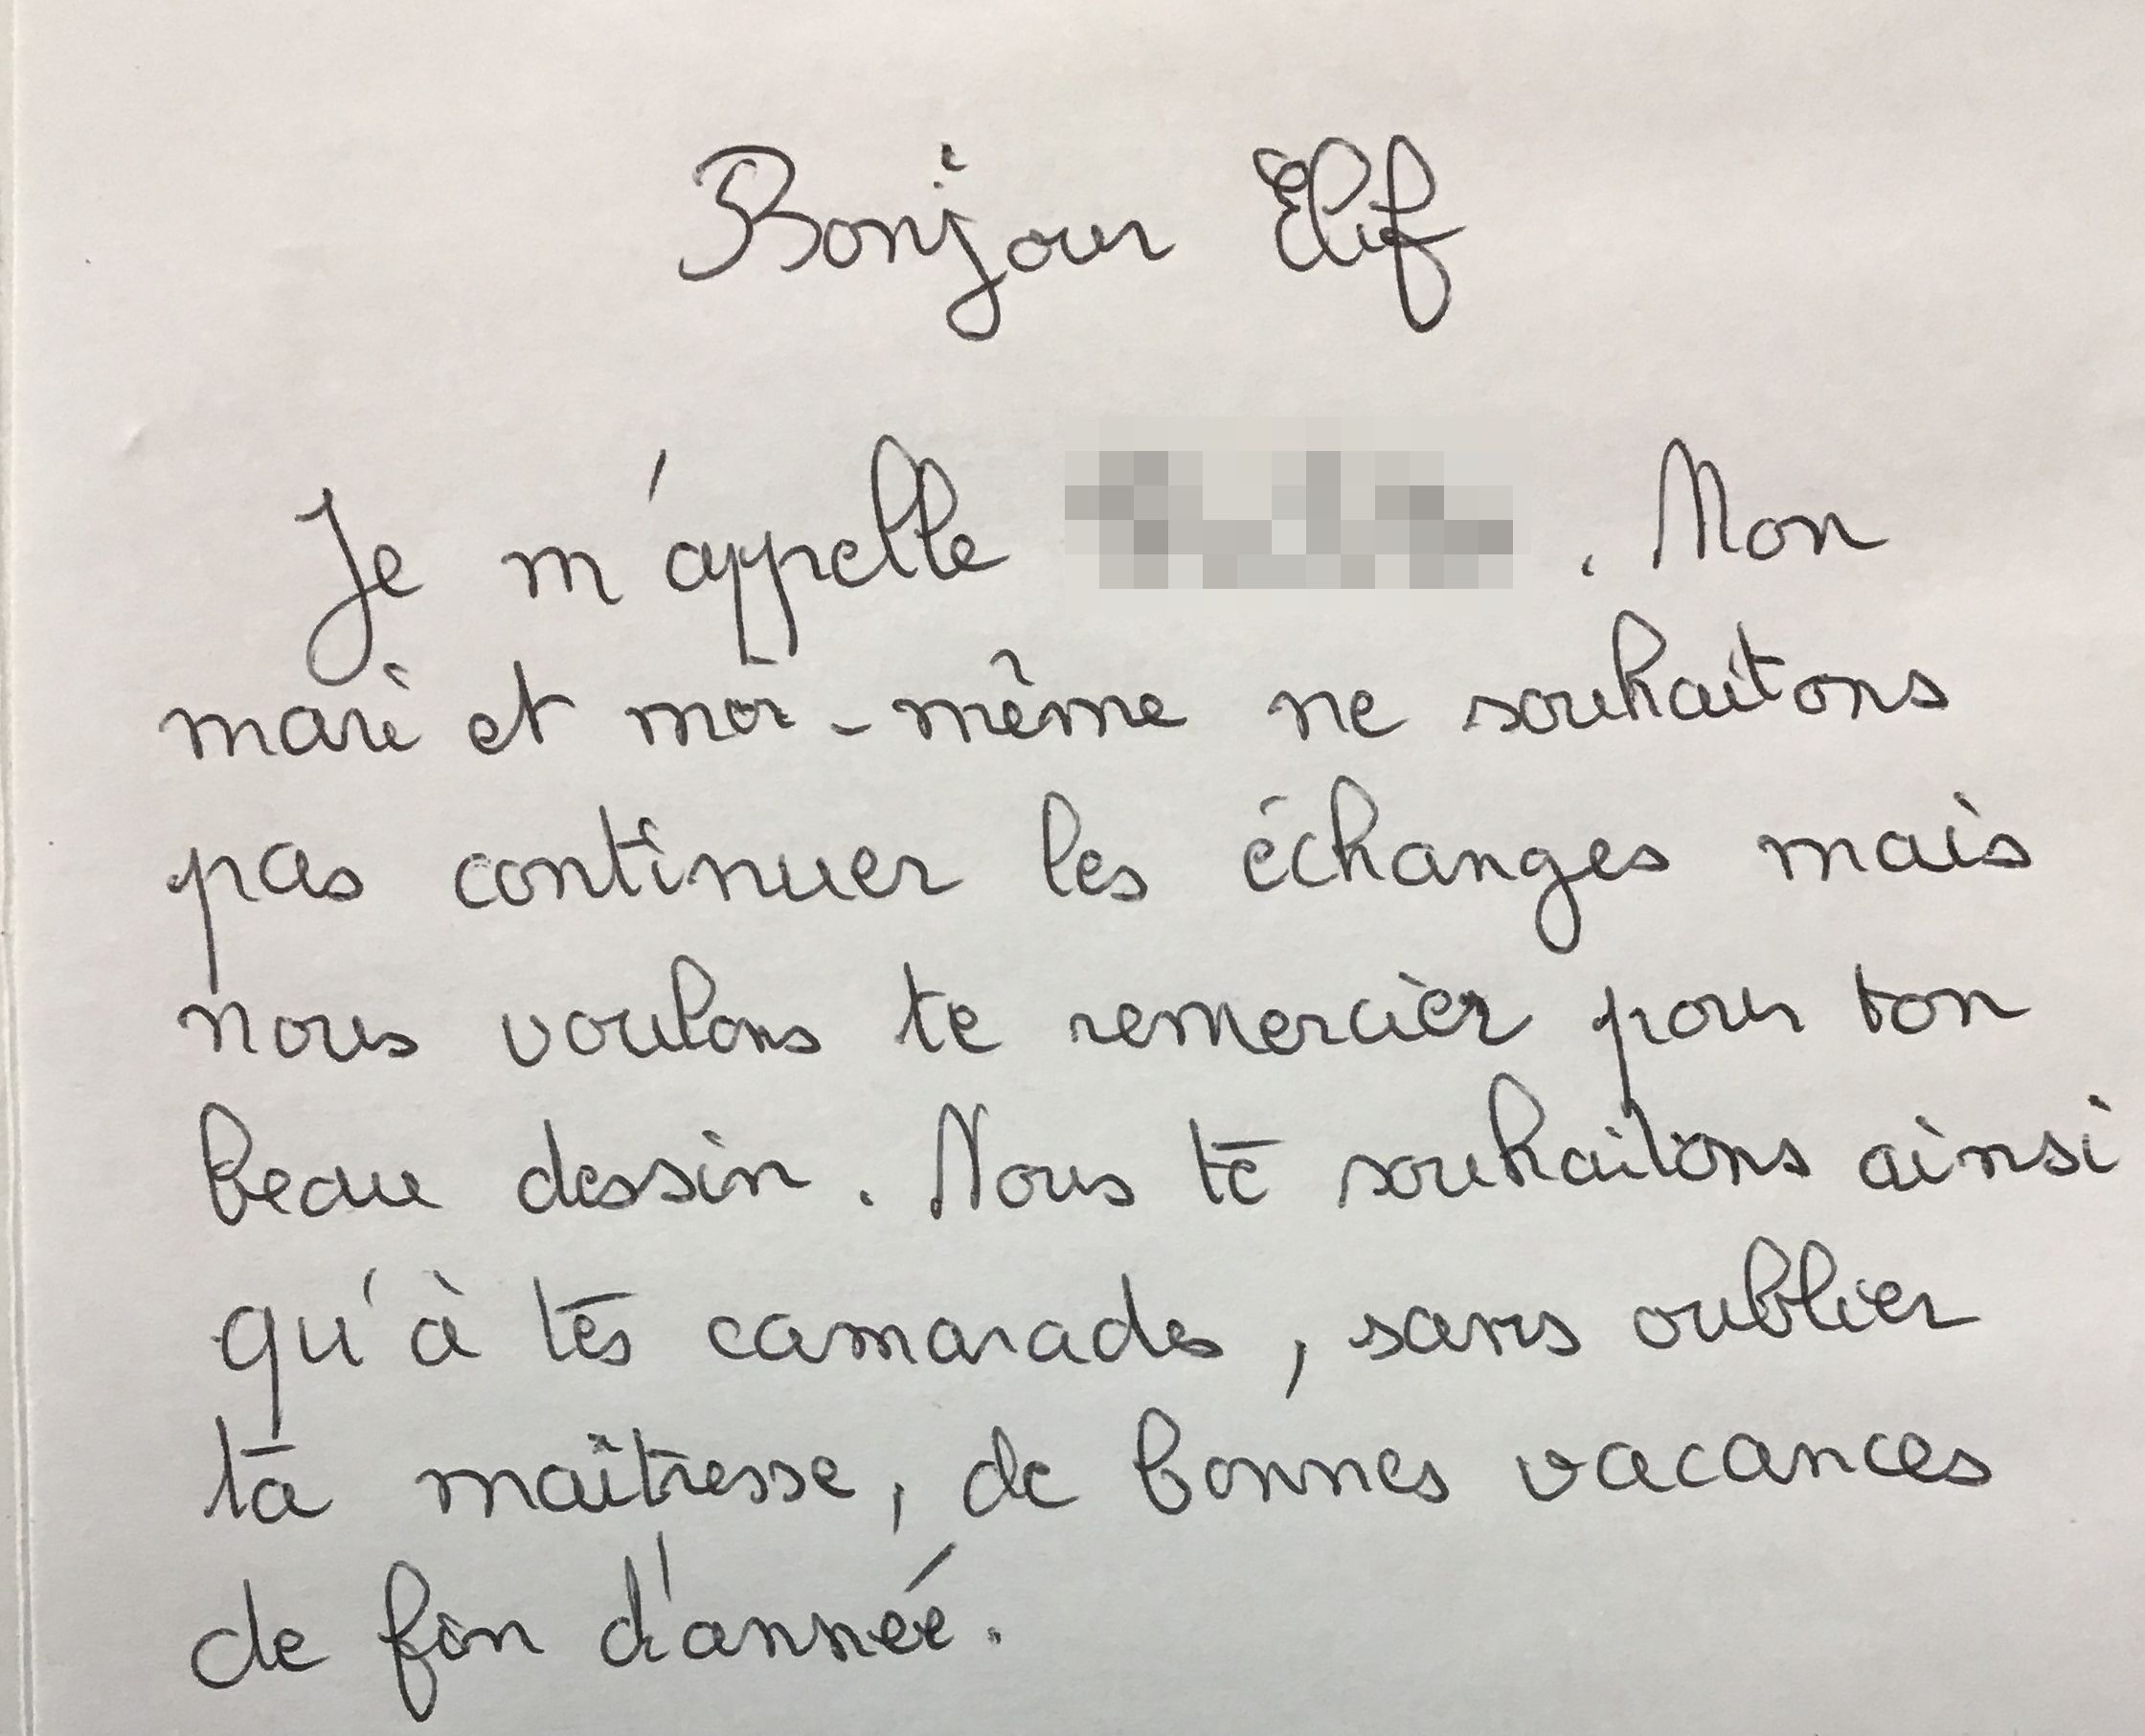 Bonjour Elif
Je m'appelle . Mon
mari et moi-même ne souhaitons
pas continuer les échanges mais
nous voulons te remercier pour ton
beau dessin. Nous te souhaitons ainsi
qu'à tes camarades, sans oublier
ta maîtresse, de bonnes vacances
de fin d'année.